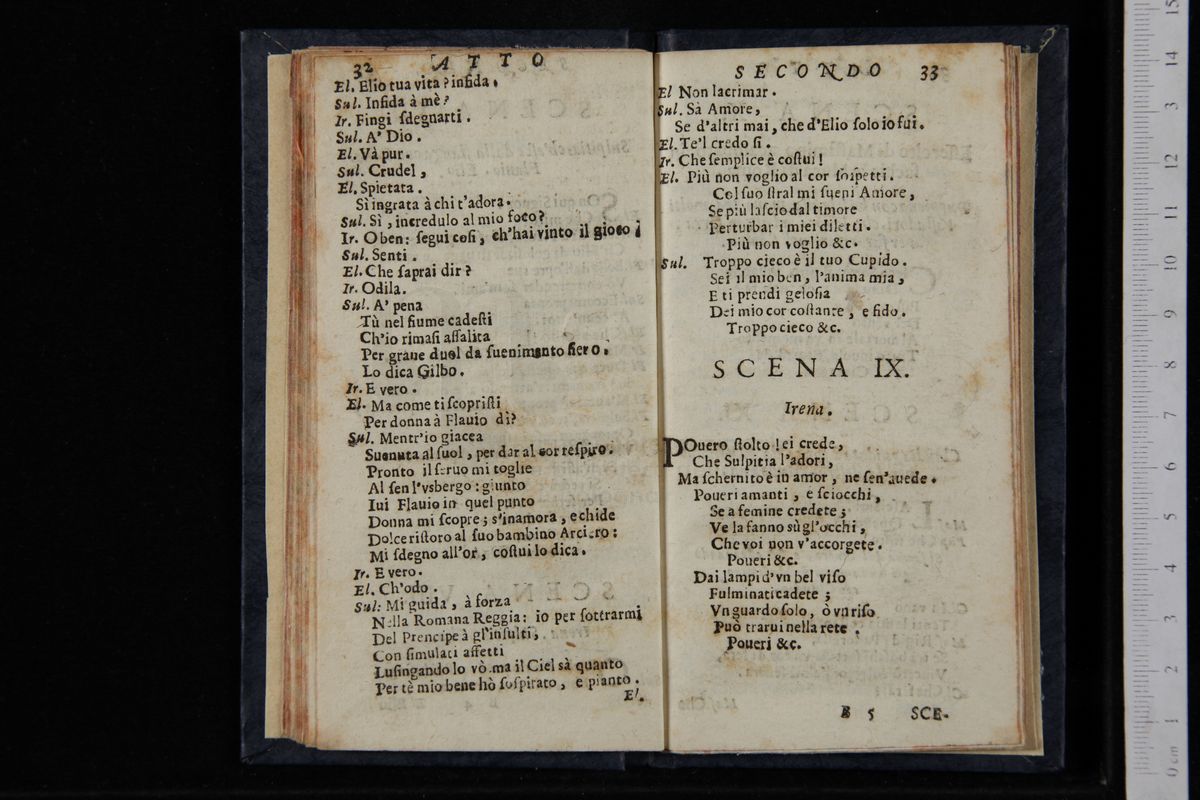 32 ATTO
El. Elio tua vita? infida.
Sul. Infida à mè?
Ir. Fingi ſdegnarti.
Sul. A' Dio.
El. Và pur.
Sul. Crudel,
El. Spietata.
Sì ingrata à chi t'adora.
Sul. Sì, incredulo al mio foco?
Ir. O ben: ſegui coſi, ch'hai vinto il gioco;
Sul. Senti.
El. Che ſaprai dir?
Ir. Odila.
Sul. A' pena
Tù nel fiume cadeſti
Ch'io rimaſi aſſalita
Per graue duol da ſuenimento fiero.
Lo dica Gilbo.
Ir. E vero.
El. Ma come ti ſcopriſti
Per donna à Flauio dì?
Sul. Mentr'io giacea
Suenuta al ſuol, per dar al cor reſpiro.
Pronto il ſeruo mi toglie
Al ſen l'vsbergo: giunto
Iui Flauio in quel punto
Donna mi ſcopre; s'inamora, e chide
Dolce riſtoro al ſuo bambino Arciero:
Mi ſdegno all'or, coſtui lo dica.
Ir. E vero.
El. Ch'odo.
Sul: Mi guida, à forza
Nella Romana Reggia: io per ſottrarmi
Del Prencipe à gl'inſulti,
Con ſimulati affetti
Luſingando lo vò. ma il Ciel sà quanto
Per tè mio bene hò ſoſpirato, e pianto.
El.
SECONDO 33
El Non lacrimar.
Sul. Sà Amore,
Se d'altri mai, che d'Elio ſolo io fui.
El. Te'l credo ſi.
Ir. Che ſemplice è coſtui!
El. Più non voglio al cor ſoſpetti.
Col ſuo ſtral mi ſueni Amore,
Se più laſcio dal timore
Perturbar i miei diletti.
Più non voglio &c.
Sul. Troppo cieco è il tuo Cupido.
Sei il mio ben, l'anima mia,
E ti prendi geloſia
Dei mio cor coſtante, e fido.
Troppo cieco &c.
SCENA IX.
Irena.
POuero ſtolto! ei crede,
Che Sulpitia l'adori,
Ma ſchernito è in amor, ne ſen'auede.
Poueri amanti, e ſciocchi,
Se a femine credete;
Ve la fanno sù gl'occhi,
Che voi non v'accorgete.
Poueri &c.
Dai lampi d'vn bel viſo
Fulminati cadete;
Vn guardo ſolo, ò vn riſo
Può trarui nella rete.
Poueri &c.
B 5 SCE-
15
14
3
12
11
10
9
8
7
6
5
4
3
2
1
0 cm